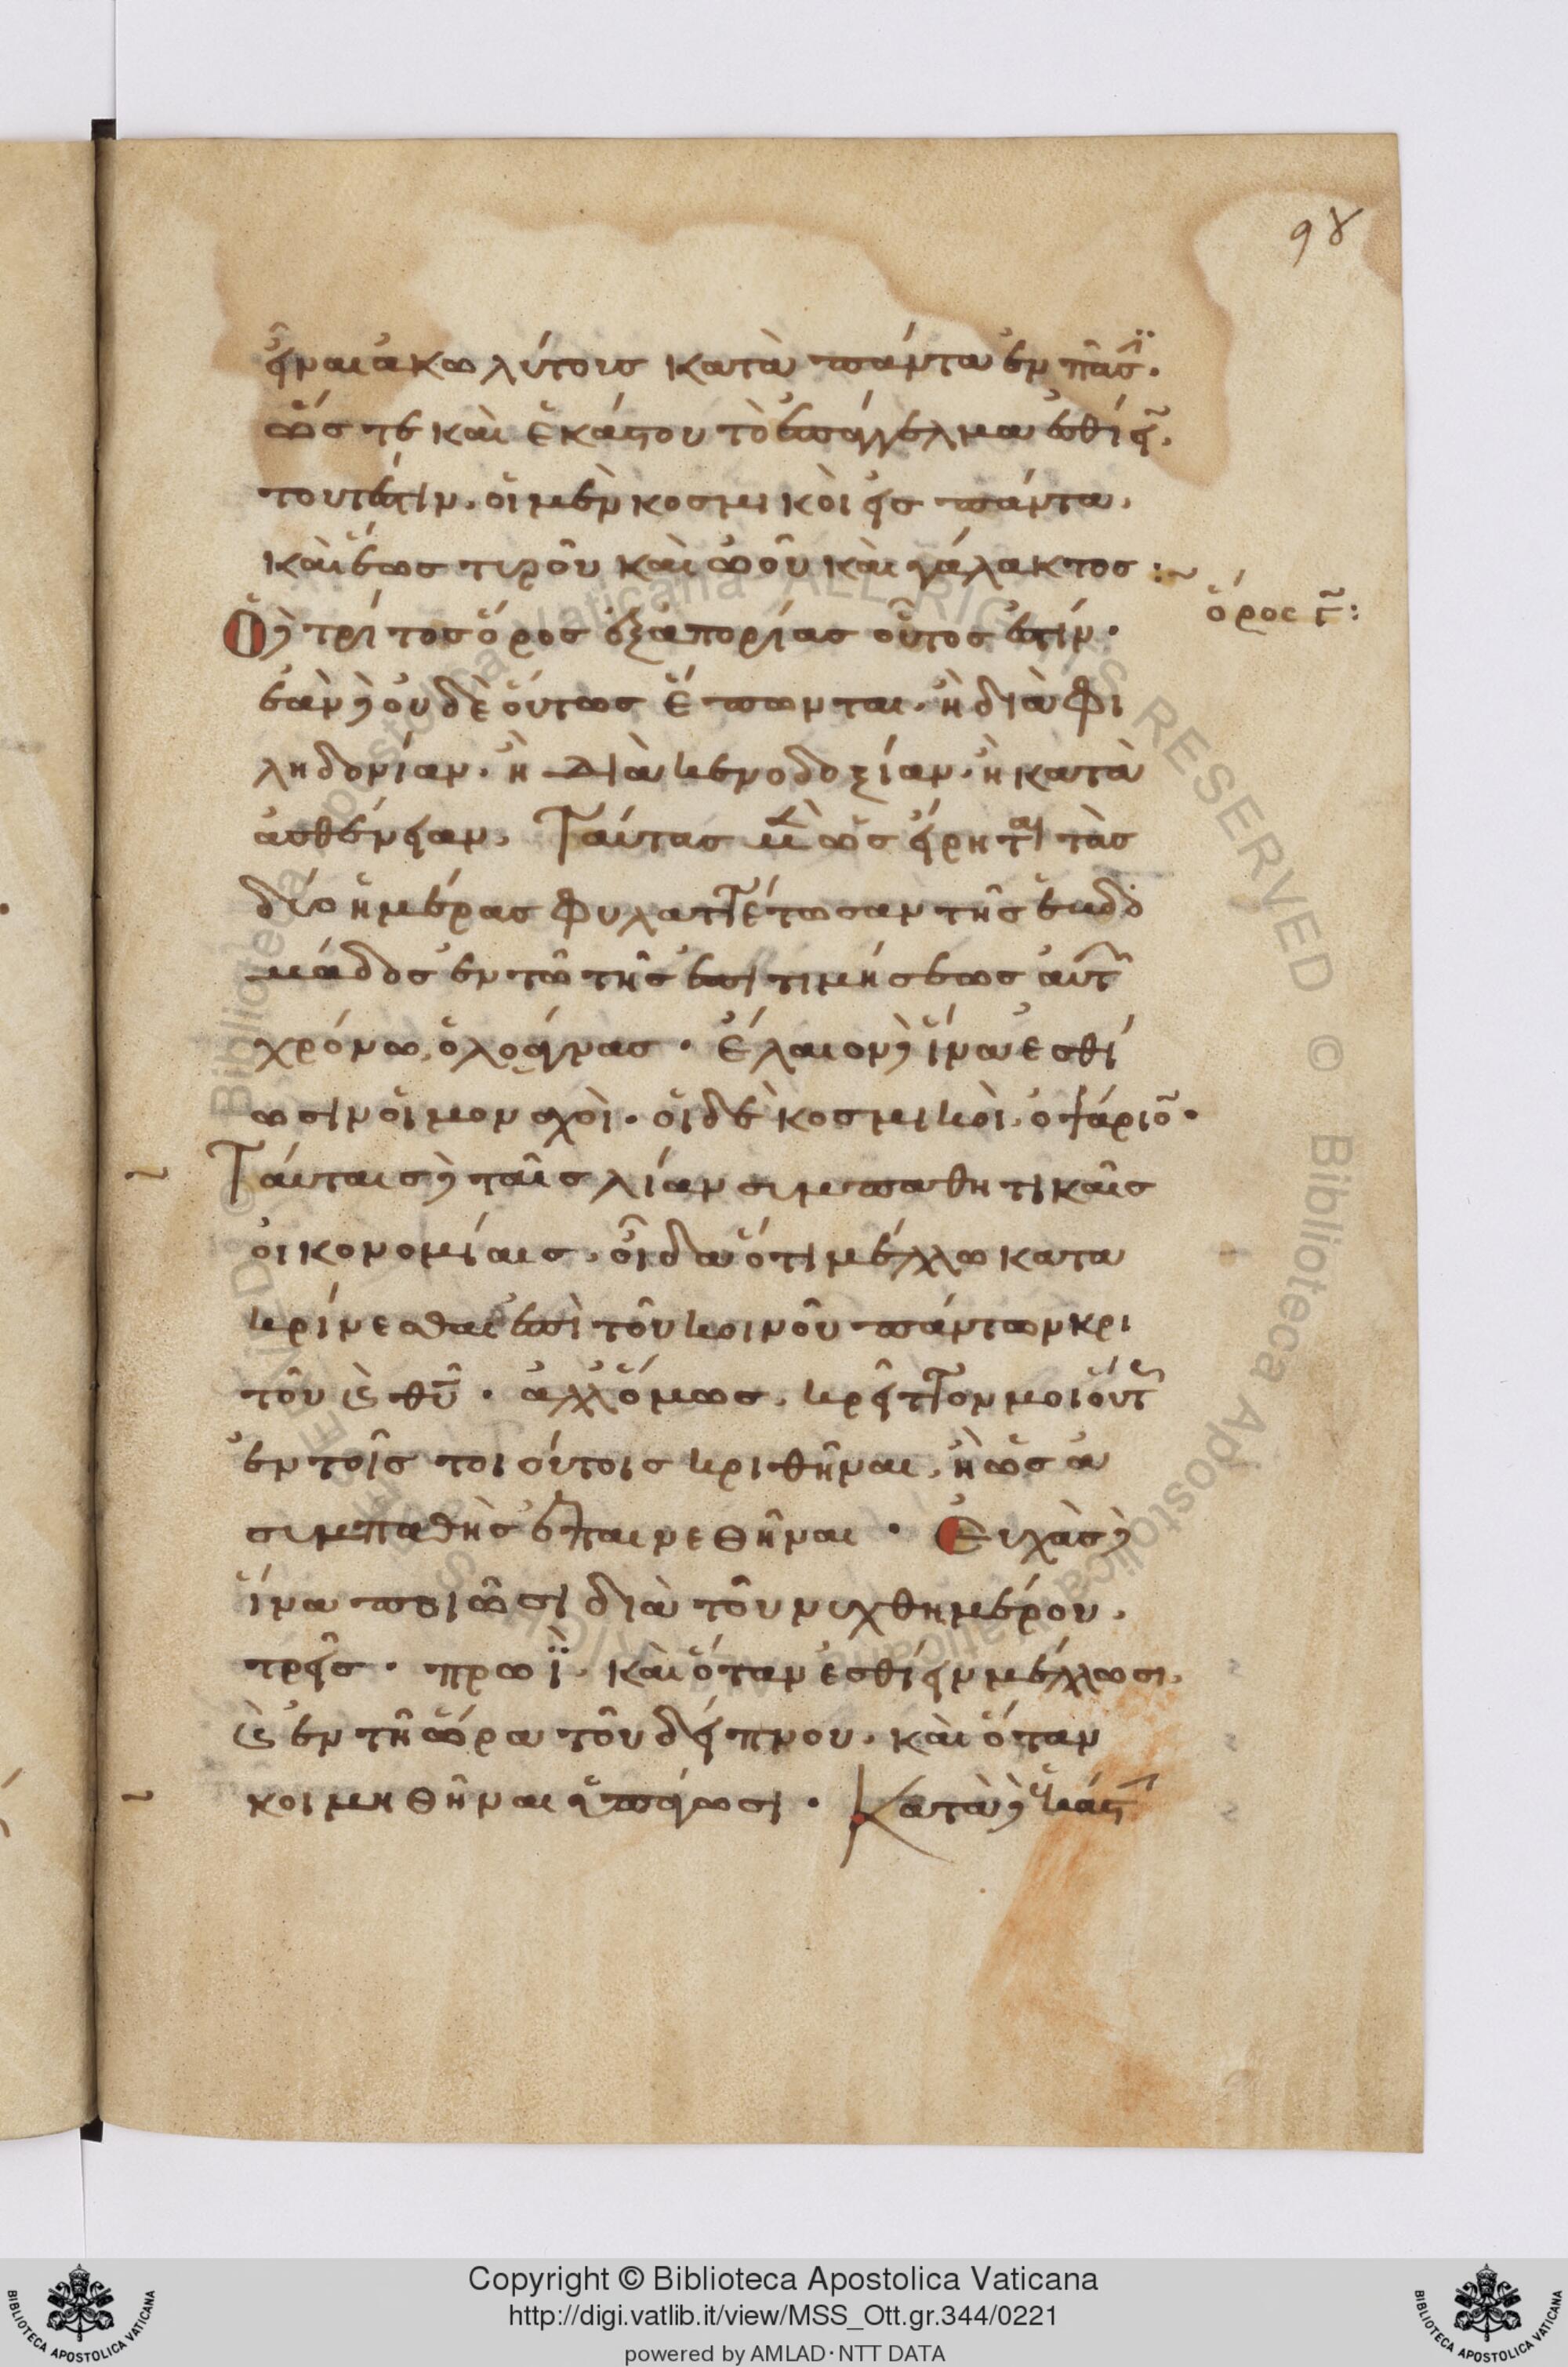 98
εἶναι ἀκωλύτους κατὰ πάντα ἐν πᾶσϊ.
ὥς τε καὶ ἑκάστου τὸ ἐπάγγελμα ἐσθίει.
τουτέστιν. οἱ μὲν κοσμικοὶ εἰς πάντα.
καὶ ἕως τυροῦ καὶ ὠοῦ καὶ γάλακτος :~
ὅρος γ̅:
Ὁ δὲ τρίτος ὅρος ἐξαπορίας οὗτος ἐστίν.
ἐὰν δὲ οὐδὲ οὕτως ἕπωνται. ἢ διὰ φι
ληδονίαν. ἢ διὰ κενοδοξίαν. ἢ κατὰ
ἀσθένειαν. Ταύτας μὲν ὡς εἴρηται τὰς
δύο ἡμέρας φυλαττέτωσαν τῆς ἑβδο
μάδος ἐν τῶ τῆς ἐπιτιμήσεως αὐτ
χρόνω, ὁλογείνας. ἔλαιον δὲ ἵνα ἐσθί
ωσιν οἱ μοναχοὶ. οἱ δὲ κοσμικοὶ, ὀψάριον.
Ταύταις δὲ ταῖς λίαν συμπαθητικαῖς
οἰκονομίαις. οἶδα ὅτι μέλλω κατα
κρίνεσθαι ἐπὶ τοῦ κοινοῦ πάντων κρι
τοῦ καὶ θυ̅. ἀλλ' ὅμως. κρεῖττον μοι οὕτ
ἐν τοῖς τοιούτοις κριθῆναι, ἢ ὡς ἀ
συμπαθὴς ἐπαινεθῆναι. Εὐχὰς δὲ
ἵνα ποιῶσι διὰ τοῦ νυχθημέρου.
τρεῖς. πρωῒ. καὶ ὅταν ἐσθίειν μέλλωσι.
καὶ ἐν τῆ ὥρα τοῦ δείπνου. καὶ ὅταν
κοιμηθῆναι ἐπείγωσι. Κατὰ δὲ ἑκάστ